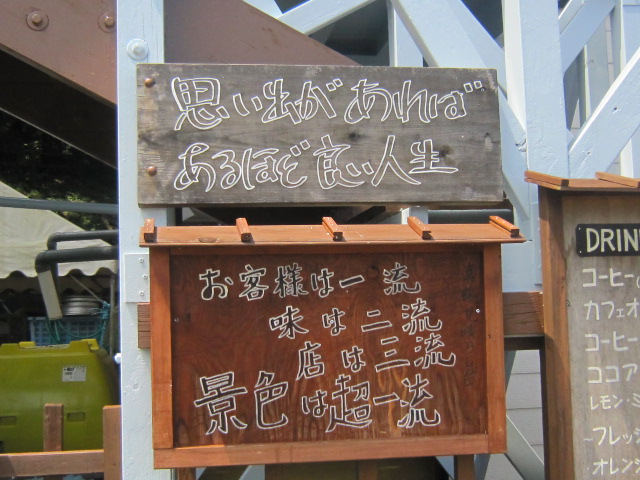 思い出があれば
あるほど良い人生
お客様は一流
味は二流
店は三流
景色は超一流
DRIN
コーヒー
カフェオ
コーヒー
ココア
レモン・ミ
～フレッシ
オレン